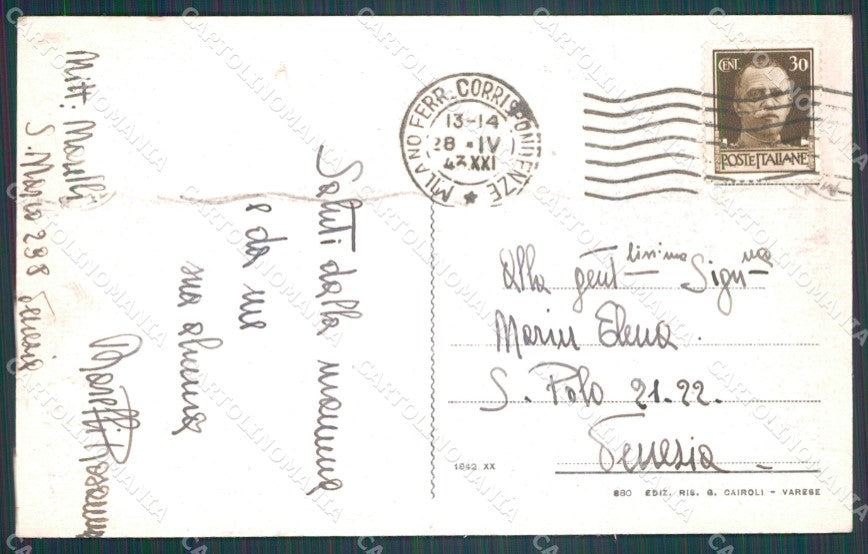 Mitt:
S. 298 Venezia
Saluti dalla mamma
e da me
MILANO FERR. CORRISPONDENZE
13-14
28 • IV
43 XXI
CENT. 30
POSTE ITALIANE
Alla gent lissima Sign na
Marin Elena.
S. Polo 21.22.
Venezia
1942 XX
880 EDIZ. RIS. G. CAIROLI - VARESE
CARTOLINOMANIA